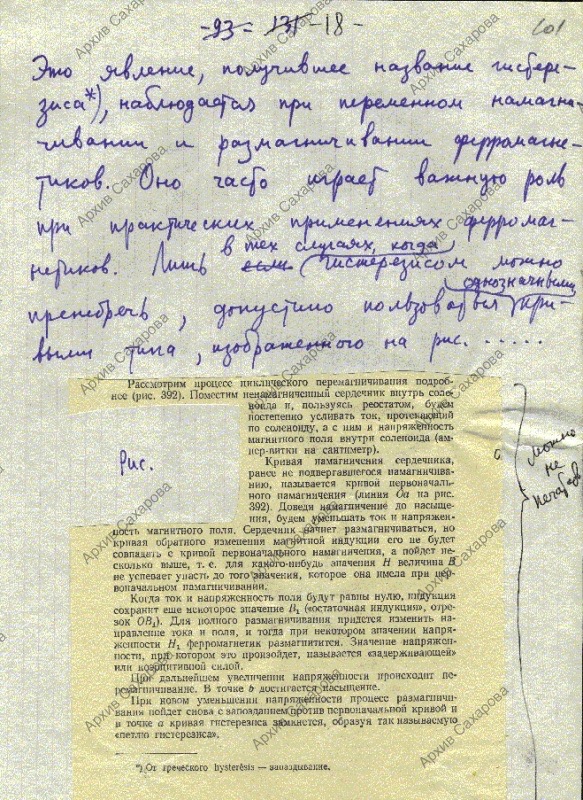 -93- -131- -18-
101
Это явление, получившее название гистере-
зиса*), наблюдается при переменном намагни-
чивании и размагничивании ферромагне-
тиков. Оно часто играет важную роль
при практических применениях ферромаг-
в тех случаях, когда
нетиков. Лишь если гистерезисом можно
однозначными
пренебречь, допустимо пользоваться кри-
выми типа, изображенного на рис. .....
Рассмотрим процесс циклического перемагничивания подроб-
нее (рис. 392). Поместим ненамагниченный сердечник внутрь соле-
ноида и, пользуясь реостатом, будем
постепенно усиливать ток, протекающий
по соленоиду, а с ним и напряженность
магнитного поля внутри соленоида (ам-
пер-витки на сантиметр).
Кривая намагничения сердечника,
ранее не подвергавшегося намагничива-
нию, называется кривой первоначаль-
ного намагничения (линия Oa на рис.
392). Доведя намагничение до насыще-
ния, будем уменьшать ток и напряжен-
Рис.
можно
не
ность магнитного поля. Сердечник начнет размагничиваться, но
кривая обратного изменения магнитной индукции его не будет
совпадать с кривой первоначального намагничения, а пойдет не-
сколько выше, т. е. для какого-нибудь значения H величина B
не успевает упасть до того значения, которое она имела при пер-
воначальном намагничивании.
Когда ток и напряженность поля будут равны нулю, индукция
сохранит еще некоторое значение B₁ («остаточная индукция», отре-
зок OB₁). Для полного размагничивания придется изменить на-
правление тока и поля, и тогда при некотором значении напря-
женности H₁ ферромагнетик размагнитится. Значение напряжен-
ности, при котором это произойдет, называется «задерживающей»
или коэрцитивной силой.
При дальнейшем увеличении напряженности происходит пе-
ремагничивание. В точке b достигается насыщение.
При новом уменьшении напряженности процесс размагничи-
вания пойдет снова с запозданием против первоначальной кривой и
в точке a кривая гистерезиса замкнется, образуя так называемую
«петлю гистерезиса».
*) От греческого hysterēsis — запаздывание.
Архив Сахарова